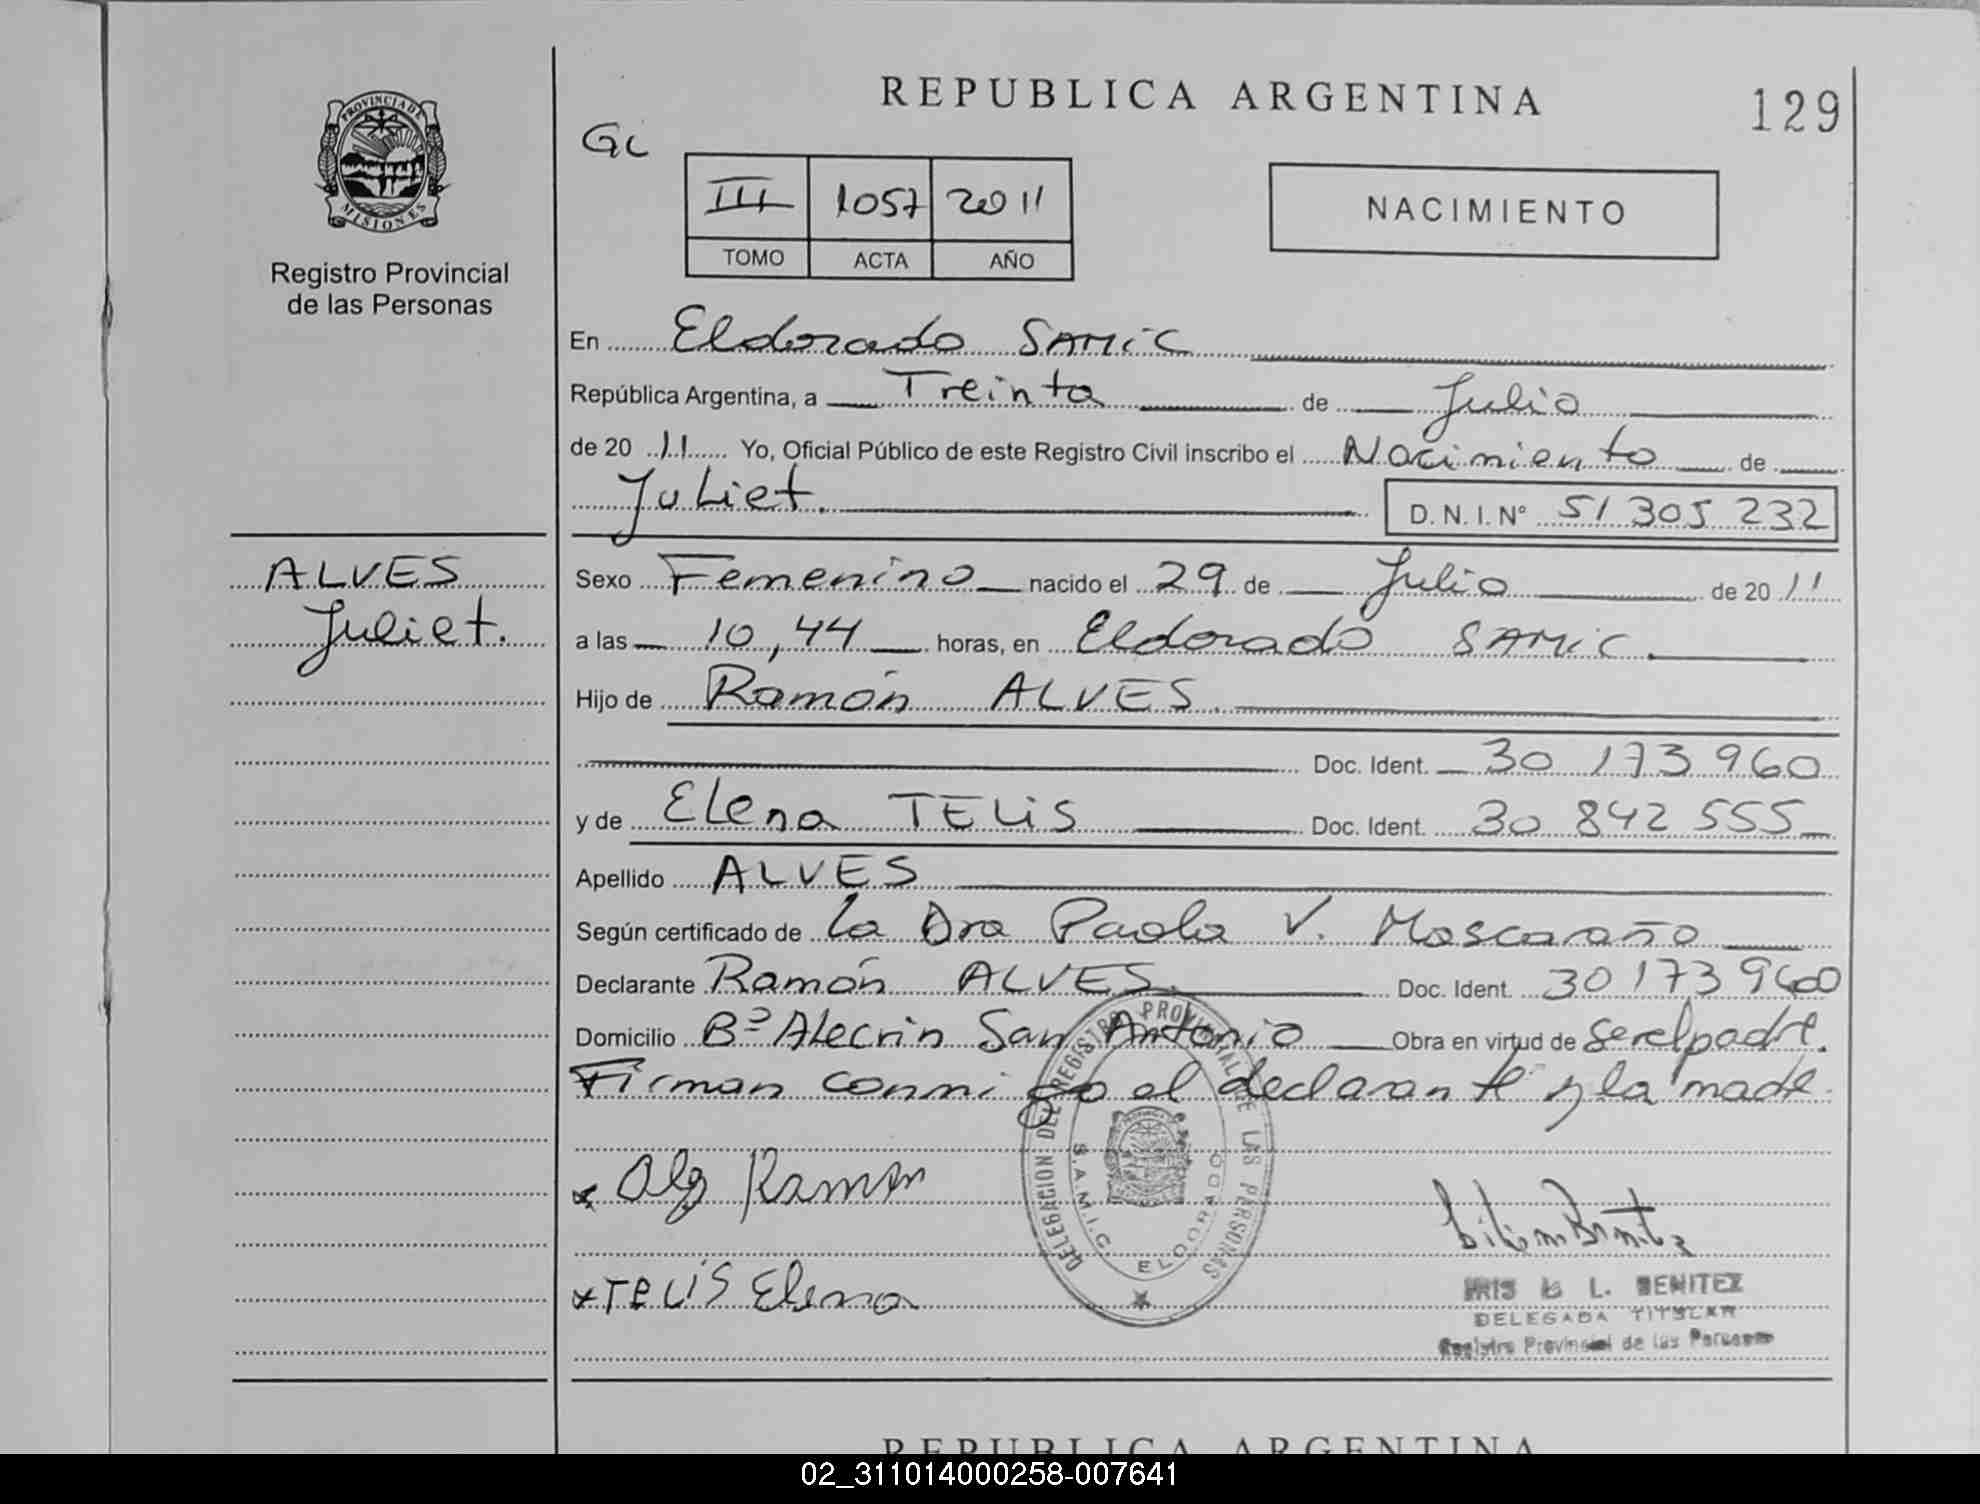 REPUBLICA ARGENTINA
129
GC
III 1057 2011
TOMO ACTA AÑO
NACIMIENTO
PROVINCIA DE MISIONES
Registro Provincial
de las Personas
En Eldorado SAMIC
República Argentina, a Treinta de Julio
de 20 11 Yo, Oficial Público de este Registro Civil inscribo el Nacimiento de
Juliet. D. N. I. N° 51 305 232
ALVES
Juliet.
Sexo Femenino nacido el 29 de Julio de 20 11
a las 10,44 horas, en Eldorado SAMIC.
Hijo de Ramón ALVES.
Doc. Ident. 30 173 960
y de Elena TELIS Doc. Ident. 30 842 555
Apellido ALVES
Según certificado de la Dra Paola V. Moscaraño
Declarante Ramón ALVES. Doc. Ident. 30 173 960
Domicilio B° Alecrin San Antonio Obra en virtud de ser el padre.
Firman conmigo el declarante y la madre.
DELEGACION DEL REGISTRO PROVINCIAL DE LAS PERSONAS
S.A.M.I.C. ELDORADO
x Ramon
x TELIS Elena
L. BENITEZ
DELEGADA TITULAR
Registro Provincial de las Personas
REPUBLICA ARGENTINA
02_311014000258-007641